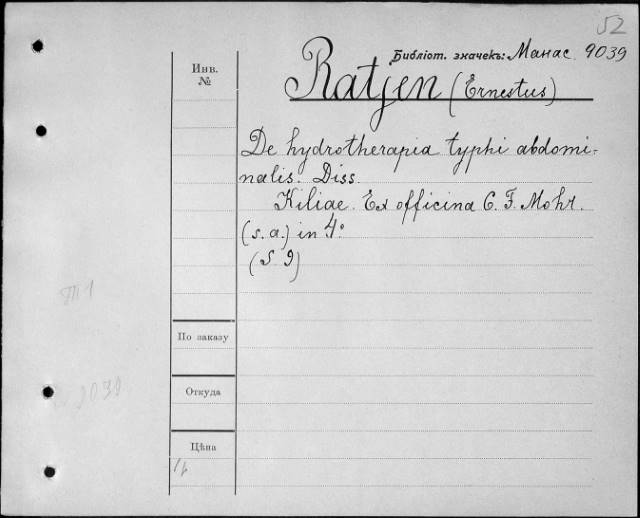 52
Библіот. значекъ: Манас. 9039
Инв.
№
Ratjen (Ernestus)
De hydrotherapia typhi abdomi-
nalis. Diss.
Kiliae. Ex officina C. F. Mohr.
(s. a.) in 4°
(S 9)
По заказу
9039
Откуда
Цѣна